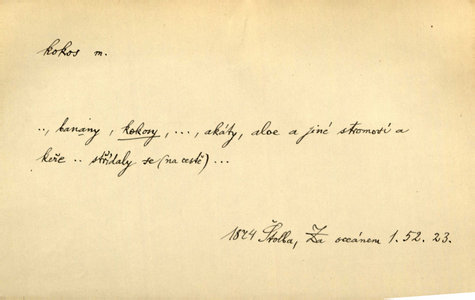 kokos m.
.., banany, kokosy, ..., akáty, aloe a jiné stromoví a
keře .. střídaly se (na cestě) ...
1874 Štolba, Za oceánem 1. 52. 23.